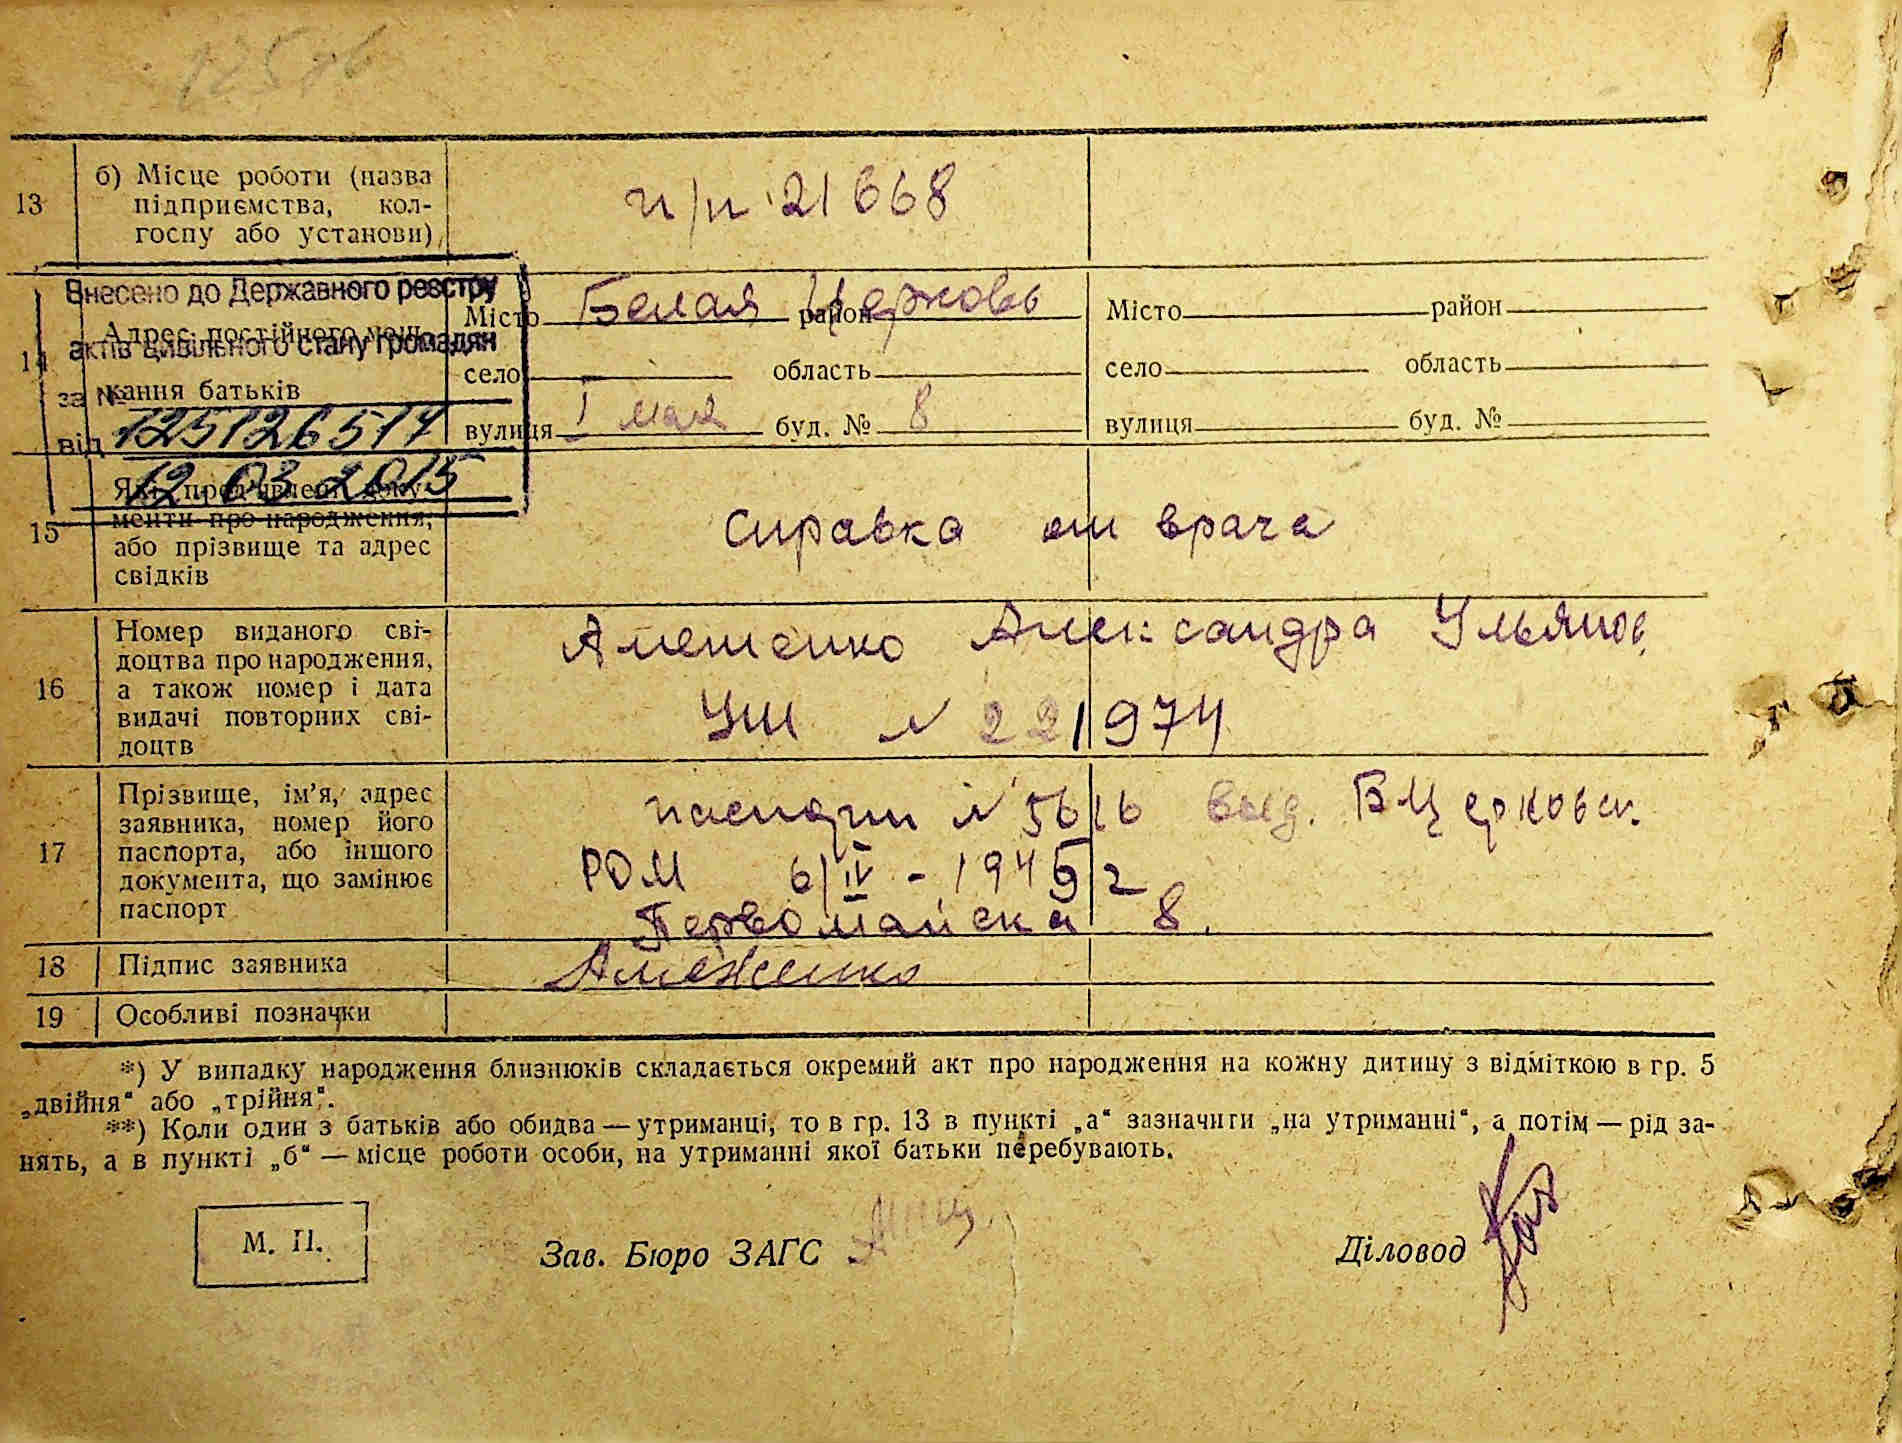 125
13
б) Місце роботи (назва
підприємства, кол-
госпу або установи)
п/п 21668
Внесено до Державного реєстру
актів цивільного стану громадян
за №
125126517
від
12.03.2015
14
Адрес постійного меш-
кання батьків
Місто Белая Церковь район
село область
вулиця 1 мая буд. № 8
Місто район
село область
вулиця буд. №
15
Які пред'явлені доку-
менти про народження,
або прізвище та адрес
свідків
справка от врача
16
Номер виданого сві-
доцтва про народження,
а також номер і дата
видачі повторних сві-
доцтв
Александра Ульянов.
УШ N 221974
17
Прізвище, ім'я, адрес
заявника, номер його
паспорта, або іншого
документа, що замінює
паспорт
паспорт N 5616 выд. БЦерковск.
РОМ 6/IV - 1945 г
Первомайска 8.
18
Підпис заявника
19
Особливі позначки
*) У випадку народження близнюків складається окремий акт про народження на кожну дитину з відміткою в гр. 5
„двійня“ або „трійня“.
**) Коли один з батьків або обидва — утриманці, то в гр. 13 в пункті „а“ зазначити „на утриманні“, а потім — рід за-
нять, а в пункті „б“ — місце роботи особи, на утриманні якої батьки перебувають.
М. П.
Зав. Бюро ЗАГС
Діловод